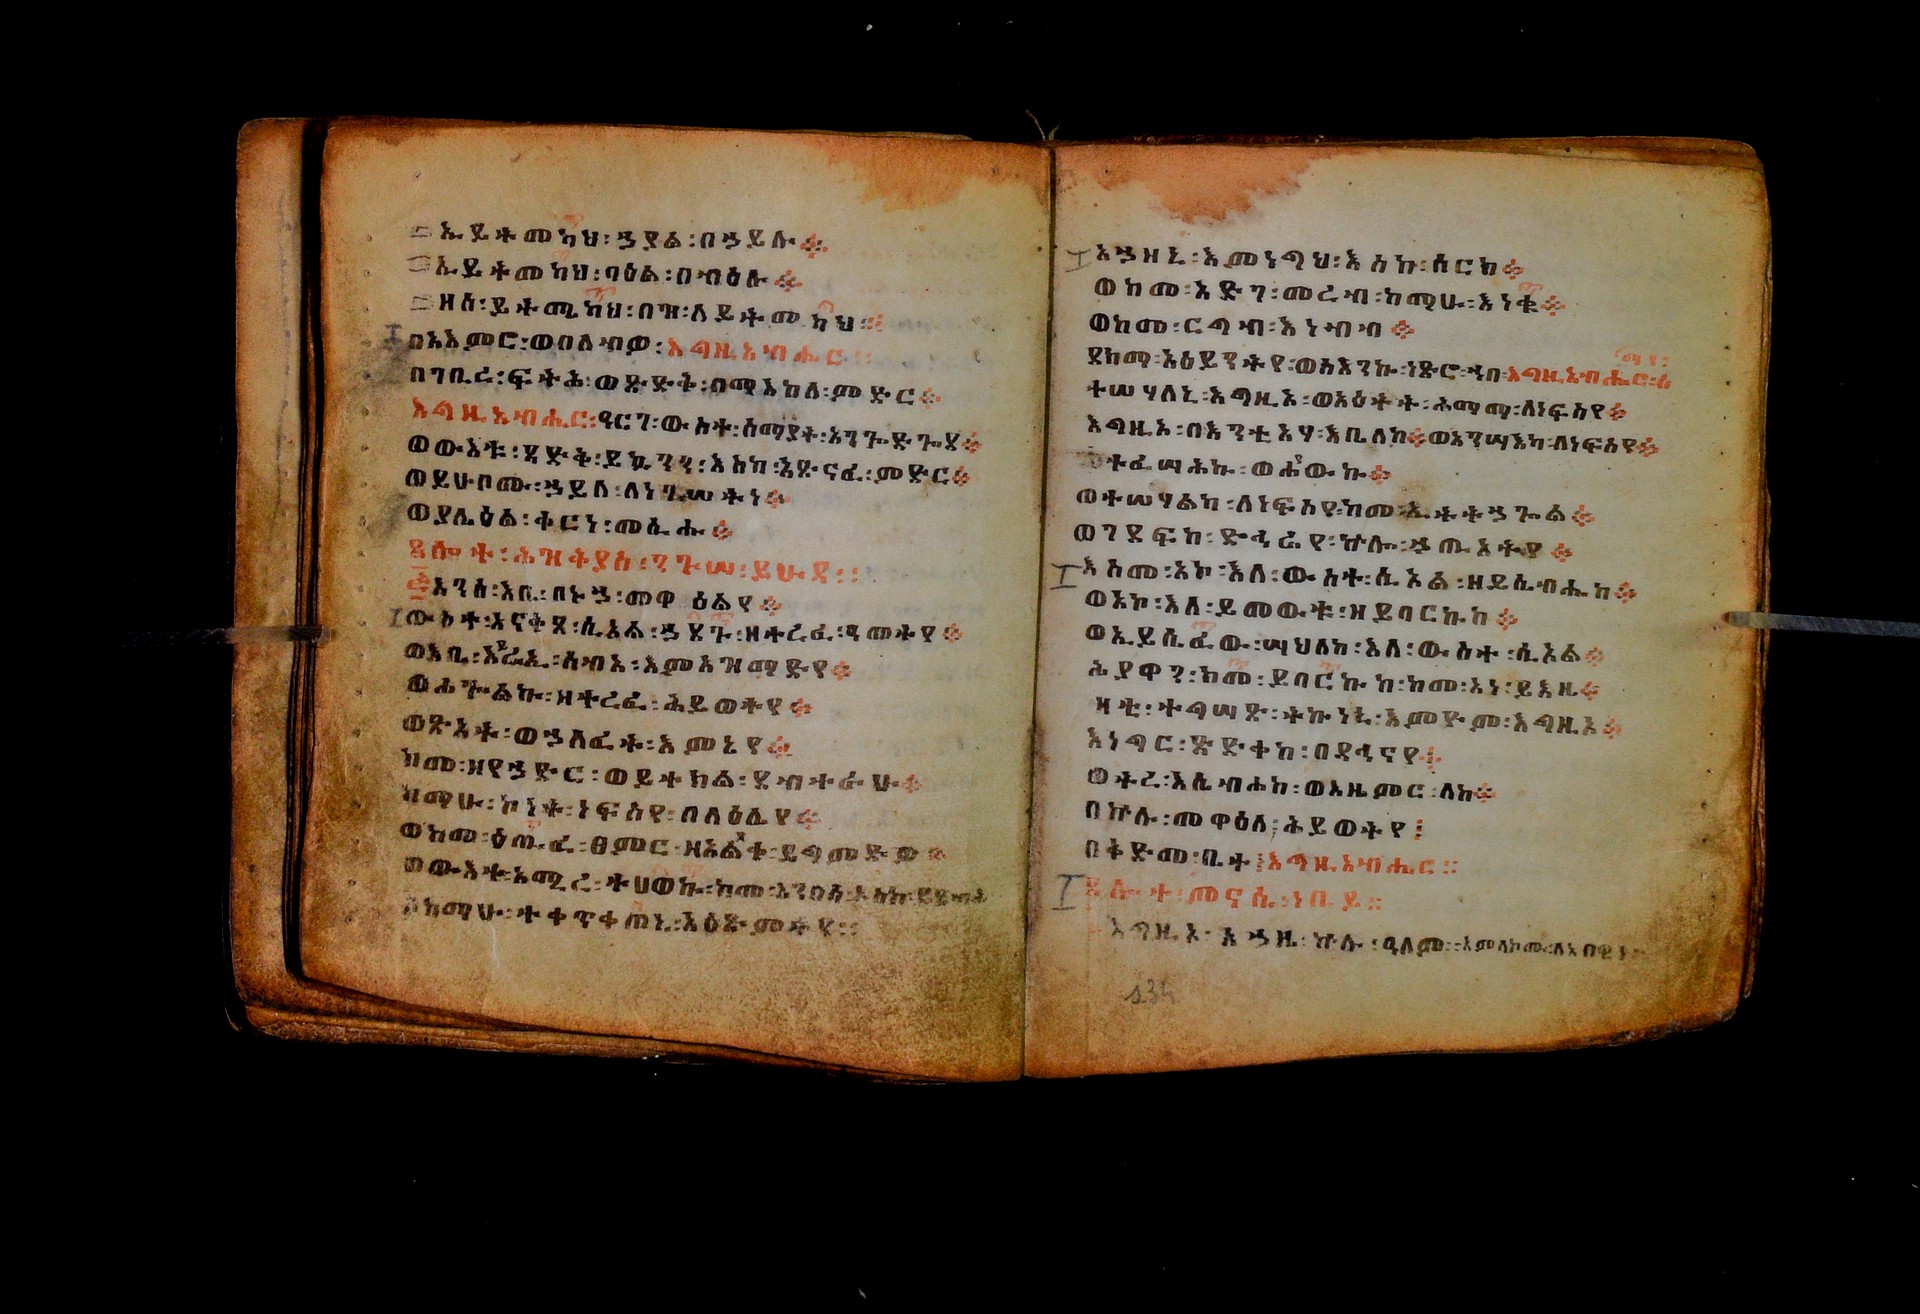 ኢይትመካህ፡ኃያል፡በኃይሉ
ኢይትመካህ፡ባዕል፡በብዕሉ
ዘሰ፡ይትሜካህ፡በዝ፡ለይትመካህ፡፡
በአእምሮ፡ወበለብዎ፡እግዚአብሔር፡፡
በገቢረ፡ፍትሕ፡ወጽድቅ፡በማእከለ፡ምድር
እግዚአብሔር፡ዓርገ፡ውስተ፡ሰማያት፡አንጐድጐደ
ወውእቱ፡ጻድቅ፡ይኴንን፡እስከ፡አጽናፈ፡ምድር
ወይሁቦሙ፡ኃይለ፡ለነገሥትነ
ወያሌዕል፡ቀርነ፡መሲሑ
ጸሎት፡ሕዝቅያስ፡ንጉሠ፡ይሁዳ፡፡
አንሰ፡እቤ፡በኑኃ፡መዋዕልየ
ውስተ፡አናቅጸ፡ሲኦል፡ኃደጉ፡ዘተረፈ፡ዓመትየ
ወእቤ፡እሬኢ፡ሰብአ፡እምአዝማድየ
ወሐጐልኩ፡ዘተረፈ፡ሕይወትየ
ወጽአት፡ወኃለፈት፡እምኔየ
ከመ፡ዘየኃድር፡ወይተክል፡ደብተራሁ
ከማሁ፡ኮነት፡ነፍስየ፡በላዕሌየ
ወከመ፡ዕጠፈ፡ፀምር፡ዘአልጸቀ፡ይግመድዎ
ከማሁ፡ተቀጥቀጠኒ፡አዕጽምትየ፡፡
እኃዘኒ፡እምነግህ፡እስኩ፡ሰርክ
ወከመ፡አድገ፡መረብ፡ከማሁ፡እነቁ
ወከመ፡ርግብ፡እነብብ
ደክማ፡አዕይንትየ፡ወአእንኩ፡ነጽሮ፡ኀበ፡እግዚአብሔር፡ሰ
ማይ፡፡
ተሣሃለኒ፡እግዚኦ፡ወአዕትት፡ሕማማ፡ለነፍስየ
እግዚኦ፡በእንቲአሃ፡እቤለከ፡ወአንሣእካ፡ለነፍስየ
ተፈሣሕኩ፡ወሐየውኩ
ወተሣሃልከ፡ለነፍስየ፡ከመ፡ኢትትኃጐል
ወገደፍከ፡ድኅሬየ፡ኵሎ፡ኃጢአትየ
እስመ፡አኮ፡እለ፡ውስተ፡ሲኦል፡ዘይሴብሑከ
ወአኮ፡እለ፡ይመውቱ፡ዘይባርኩከ
ወኢይሴፈው፡ሣህለከ፡እለ፡ውስተ፡ሲኦል
ሕያዋን፡ከመ፡ይባርኩከ፡ከመ፡አነ፡ይእዜ
ዛቲ፡ተግሣጽ፡ትኩነኒ፡እምዮም፡እግዚኦ
እነግር፡ጽድቀከ፡በዳኅናየ
ወትረ፡እሴብሐከ፡ወእዜምር፡ለከ
በኵሉ፡መዋዕለ፡ሕይወትየ፡
በቅድመ፡ቤተ፡እግዚአብሔር፡፡
ጸሎተ፡መናሴ፡ነቢይ፡፡
እግዚኦ፡አኃዜ፡ኵሉ፡ዓለም፡፡አምላከሙ፡ለአበዊነ
134